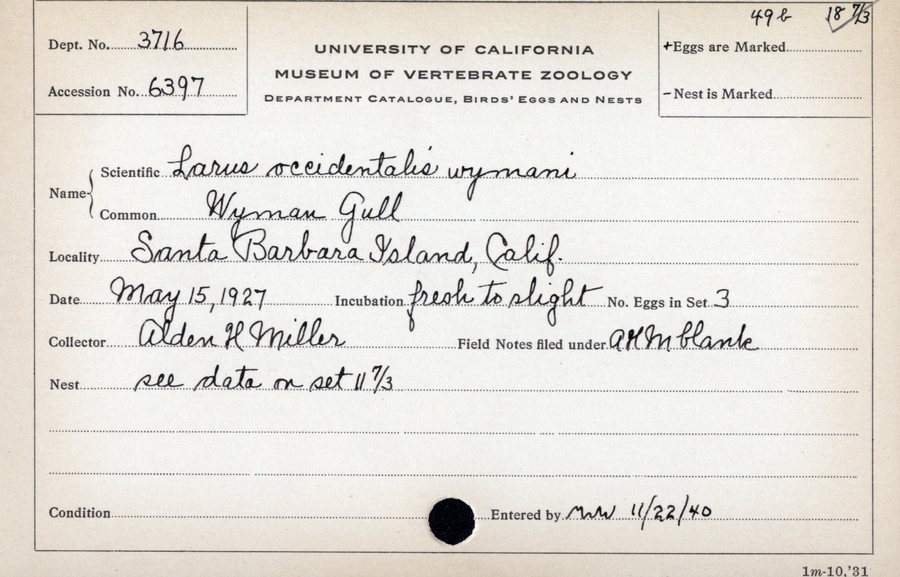 49b 18 7/3
Dept. No. 3716
Accession No. 6397
UNIVERSITY OF CALIFORNIA
MUSEUM OF VERTEBRATE ZOOLOGY
DEPARTMENT CATALOGUE, BIRDS' EGGS AND NESTS
+Eggs are Marked
-Nest is Marked
Name
Scientific Larus occidentalis wymani
Common Wyman Gull
Locality Santa Barbara Island, Calif.
Date May 15, 1927 Incubation fresh to slight No. Eggs in Set 3
Collector Alden H Miller Field Notes filed under AHM blank
Nest see data on set 11 7/3
Condition Entered by 11/22/40
1m-10,'31